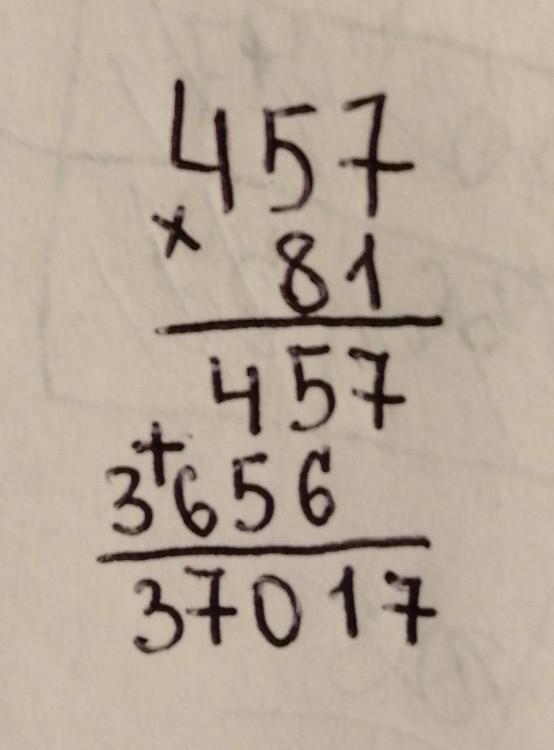 457
× 81
457
+
3656
37017